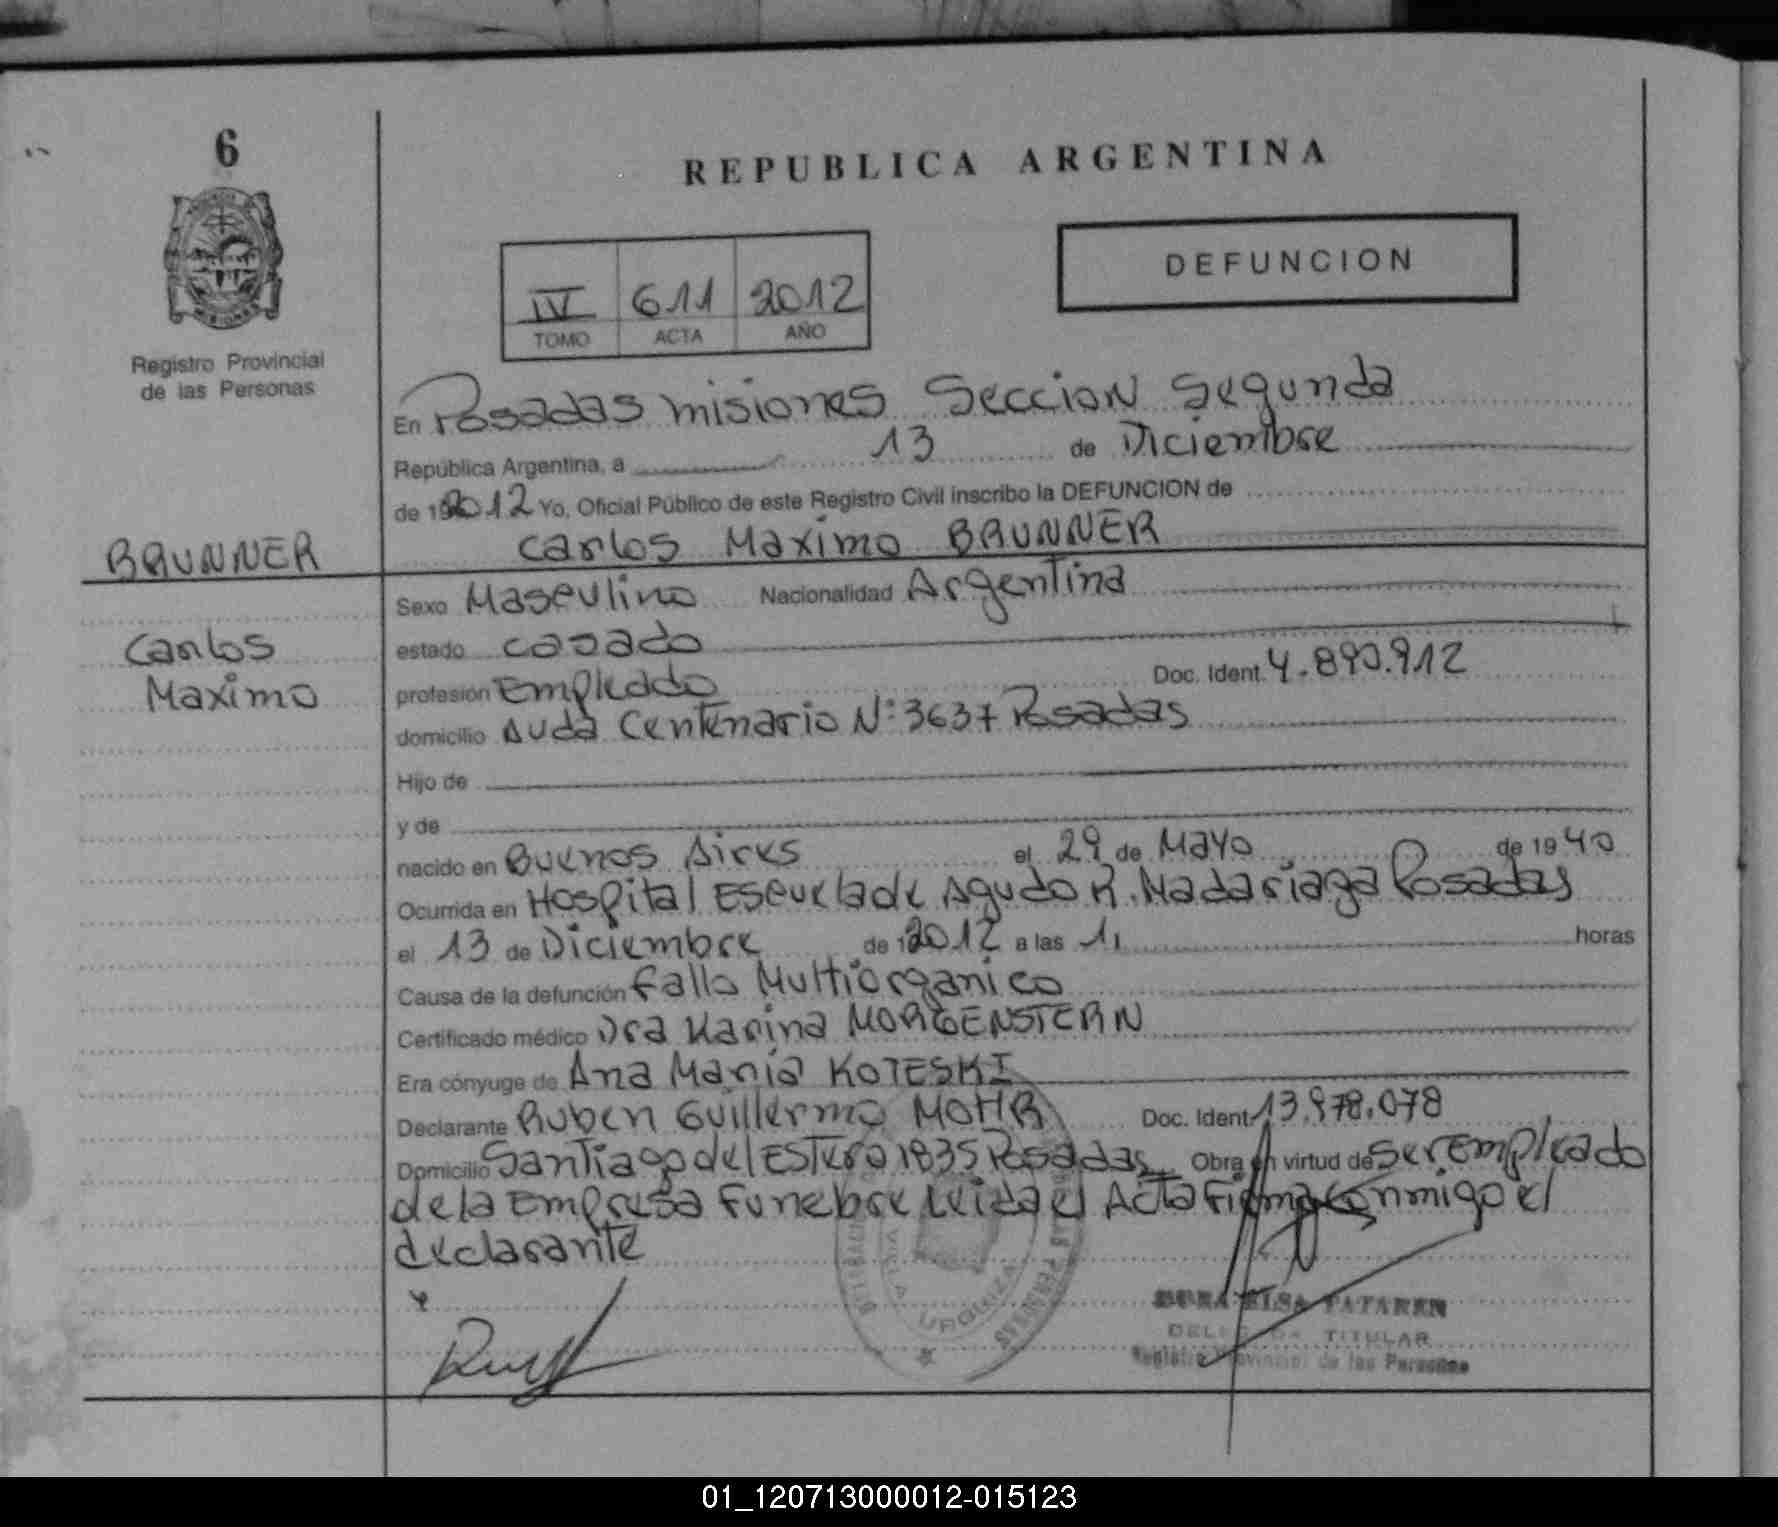 6
REPUBLICA ARGENTINA
DEFUNCION
IV 611 2012
TOMO ACTA AÑO
Registro Provincial
de las Personas
En Posadas misiones Seccion Segunda
República Argentina, a 13 de Diciembre
de 2012 Yo, Oficial Público de este Registro Civil inscribo la DEFUNCION de
BRUNNER
Carlos Maximo BRUNNER
Carlos
Maximo
Sexo Masculino Nacionalidad Argentina
estado casado
profesión Empleado Doc. Ident. 4.890.912
domicilio Avda Centenario N° 3637 Posadas
Hijo de
y de
nacido en Buenos Aires el 29 de Mayo de 1940
Ocurrida en Hospital Escuela de Agudo R. Madariaga Posadas
el 13 de Diciembre de 2012 a las 1, horas
Causa de la defunción fallo Multiorganico
Certificado médico Dra Karina MORGENSTERN
Era cónyuge de Ana Maria KOTESKI
Declarante Ruben Guillermo MOHR Doc. Ident. 13.978.078
Domicilio Santiago del Estero 1835 Posadas Obra en virtud de ser Empleado
de la Empresa Funebre Leida el Acta Firma Conmigo el
declarante
URQUIZA
ELSA
TITULAR
Registro Provincial de las Personas
01_120713000012-015123